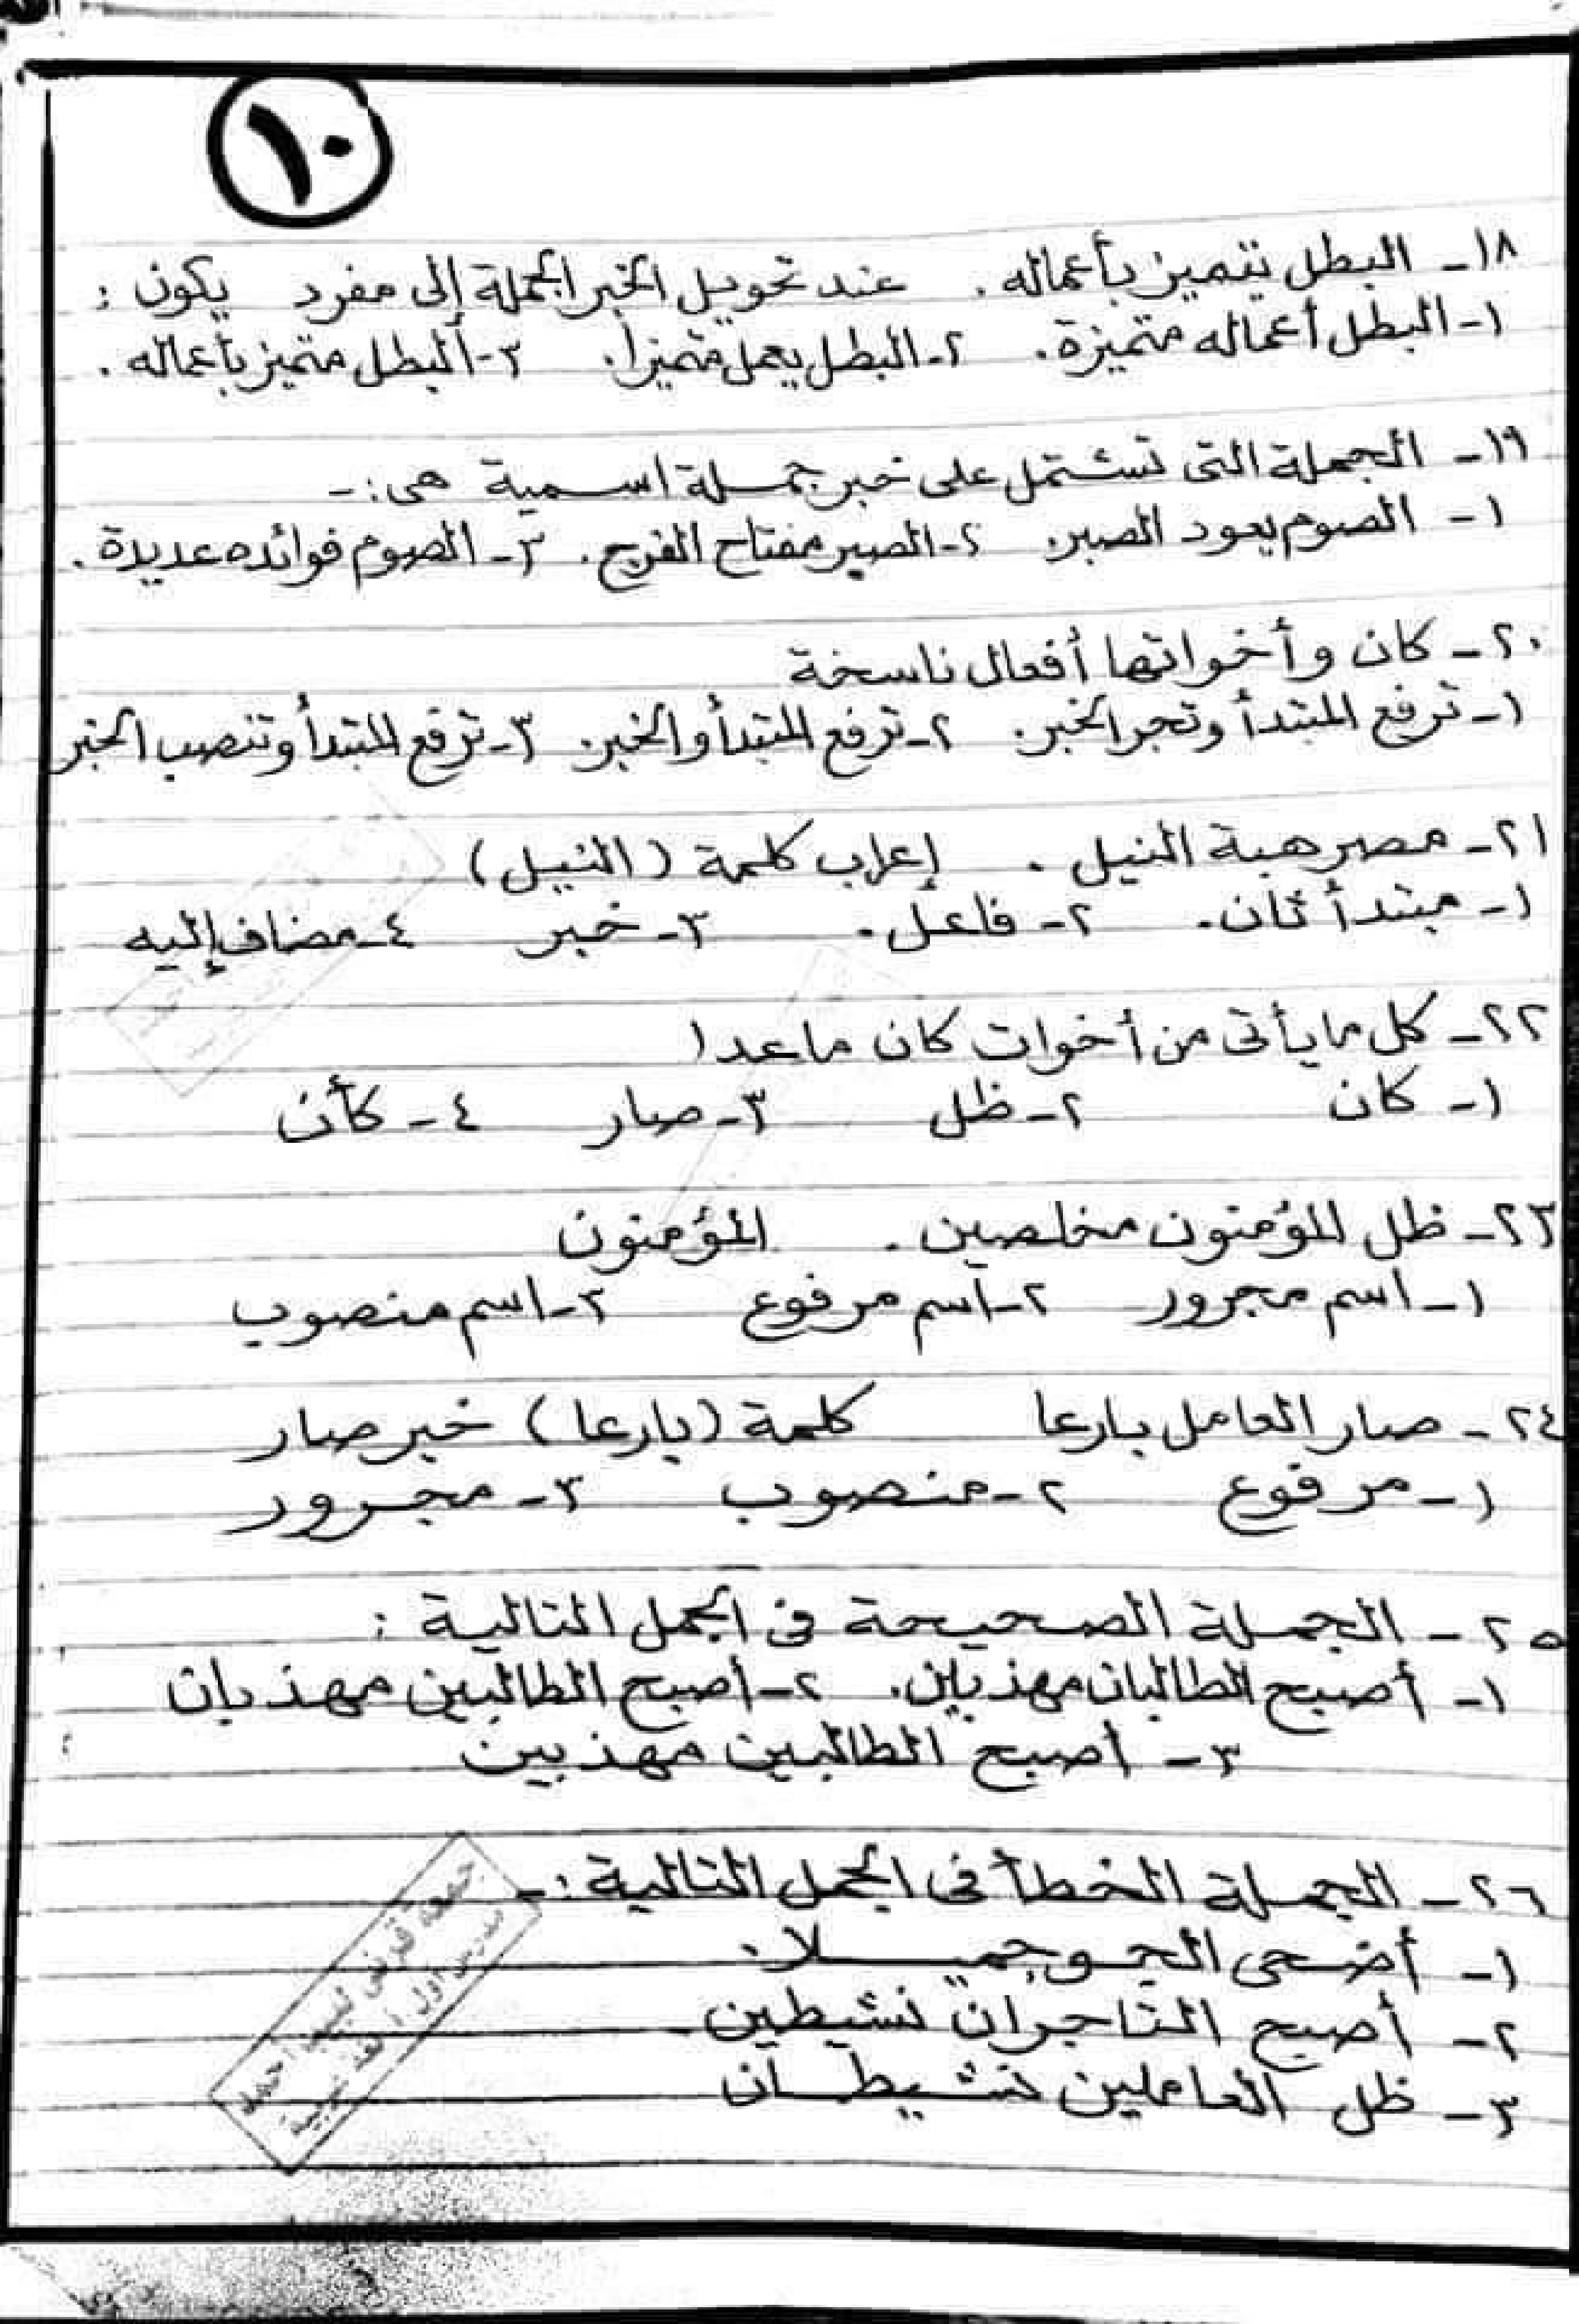 ١٠
١٨- البطل يتميز بأعماله. عند تحويل الخبر الجملة إلى مفرد يكون :
١- البطل أعماله متميزة. ٢- البطل يعمل متميزا. ٣- البطل متميز بأعماله.
١٩- الجملة التى تشتمل على خبر جملة اسمية هى:-
١- الصوم يعود الصبر. ٢- الصبر مفتاح الفرج. ٣- الصوم فوائده عديدة.
٢٠- كان وأخواتها أفعال ناسخة
١- ترفع المبتدأ وتجر الخبر. ٢- ترفع المبتدأ والخبر. ٣- ترفع المبتدأ وتنصب الخبر
٢١- مصر هبة النيل . إعراب كلمة (النيل)
١- مبتدأ ثان. ٢- فاعل. ٣- خبر ٤- مضاف إليه
٢٢- كل ما يأتى من أخوات كان ماعدا
١- كان ٢- ظل ٣- صار ٤- كأن
٢٣- ظل المؤمنون مخلصين. المؤمنون
١- اسم مجرور ٢- اسم مرفوع ٣- اسم منصوب
٢٤- صار العامل بارعا كلمة (بارعا) خبر صار
١- مرفوع ٢- منصوب ٣- مجرور
٢٥- الجملة الصحيحة فى الجمل التالية :
١- أصبح الطالبان مهذبين. ٢- أصبح الطالبين مهذبان
٣- أصبح الطالبين مهذبين
٢٦- الجملة الخطأ فى الجمل التالية :-
١- أضحى الجو جميلا.
٢- أصبح التاجران نشيطين.
٣- ظل العاملين نشيطان